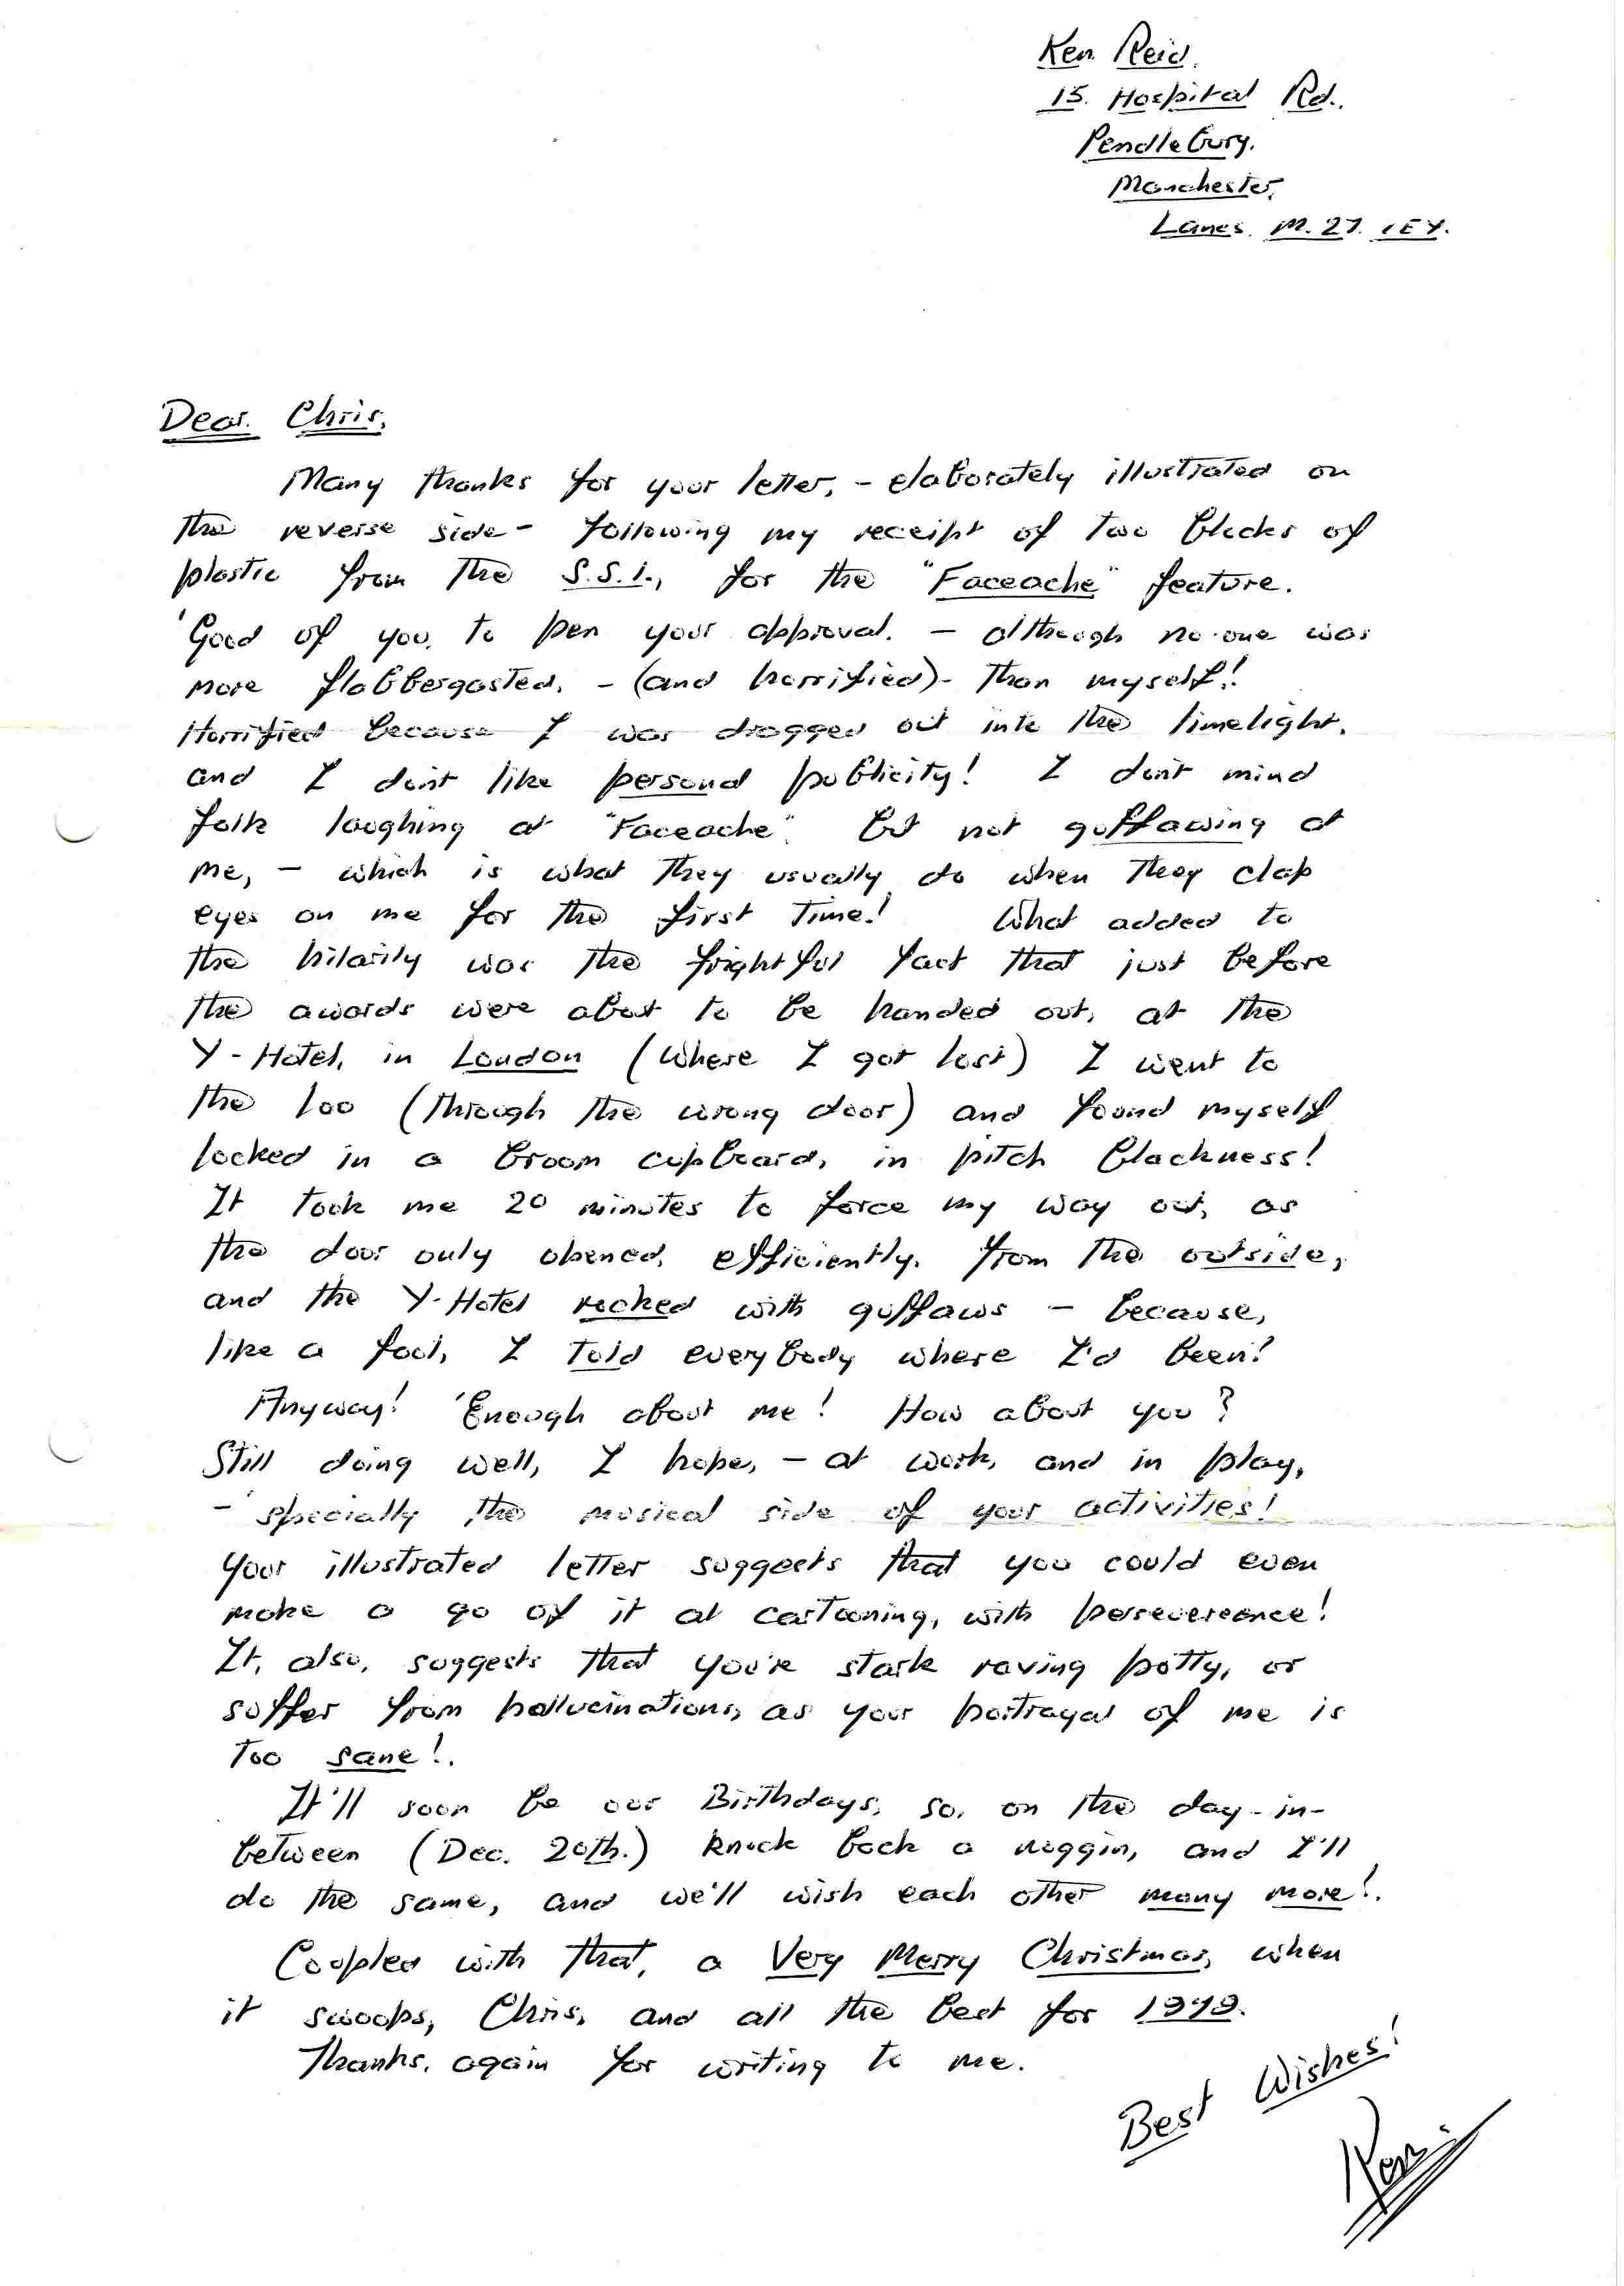 Ken Reid.
15. Hospital Rd.,
Pendlebury.
Manchester,
Lancs. M.27. 1EY.
Dear. Chris,
Many thanks for your letter, - elaborately illustrated on
the reverse side - following my receipt of two blocks of
plastic from the S.S.I., for the "Faceache" feature.
'Good of you, to pen your approval. - although no-one was
more flabbergasted, - (and horrified) - than myself!
Horrified because I was dragged out into the limelight.
and I don't like personal publicity! I don't mind
folk laughing at "Faceache". but not guffawing at
me, - which is what they usually do when they clap
eyes on me for the first time! What added to
the hilarity was the frightful fact that just before
the awards were about to be handed out, at the
Y-Hotel, in London (where I got lost) I went to
the loo (through the wrong door) and found myself
locked in a broom cupboard, in pitch blackness!
It took me 20 minutes to force my way out, as
the door only opened, efficiently, from the outside,
and the Y-Hotel rocked with guffaws - because,
like a fool, I told everybody where I'd been!
Anyway! 'Enough about me! How about you?
Still doing well, I hope, - at work, and in play,
- 'specially the musical side of your activities!
Your illustrated letter suggests that you could even
make a go of it at cartooning, with persevereance!
It, also, suggests that you're stark raving potty, or
suffer from hallucinations, as your portrayal of me is
too sane!.
It'll soon be our Birthdays, so, on the day-in-
between (Dec. 20th.) knock back a noggin, and I'll
do the same, and we'll wish each other many more!.
Coupled with that, a Very Merry Christmas, when
it swoops, Chris, and all the best for 1979.
Thanks, again for writing to me.
Best Wishes!
Ken